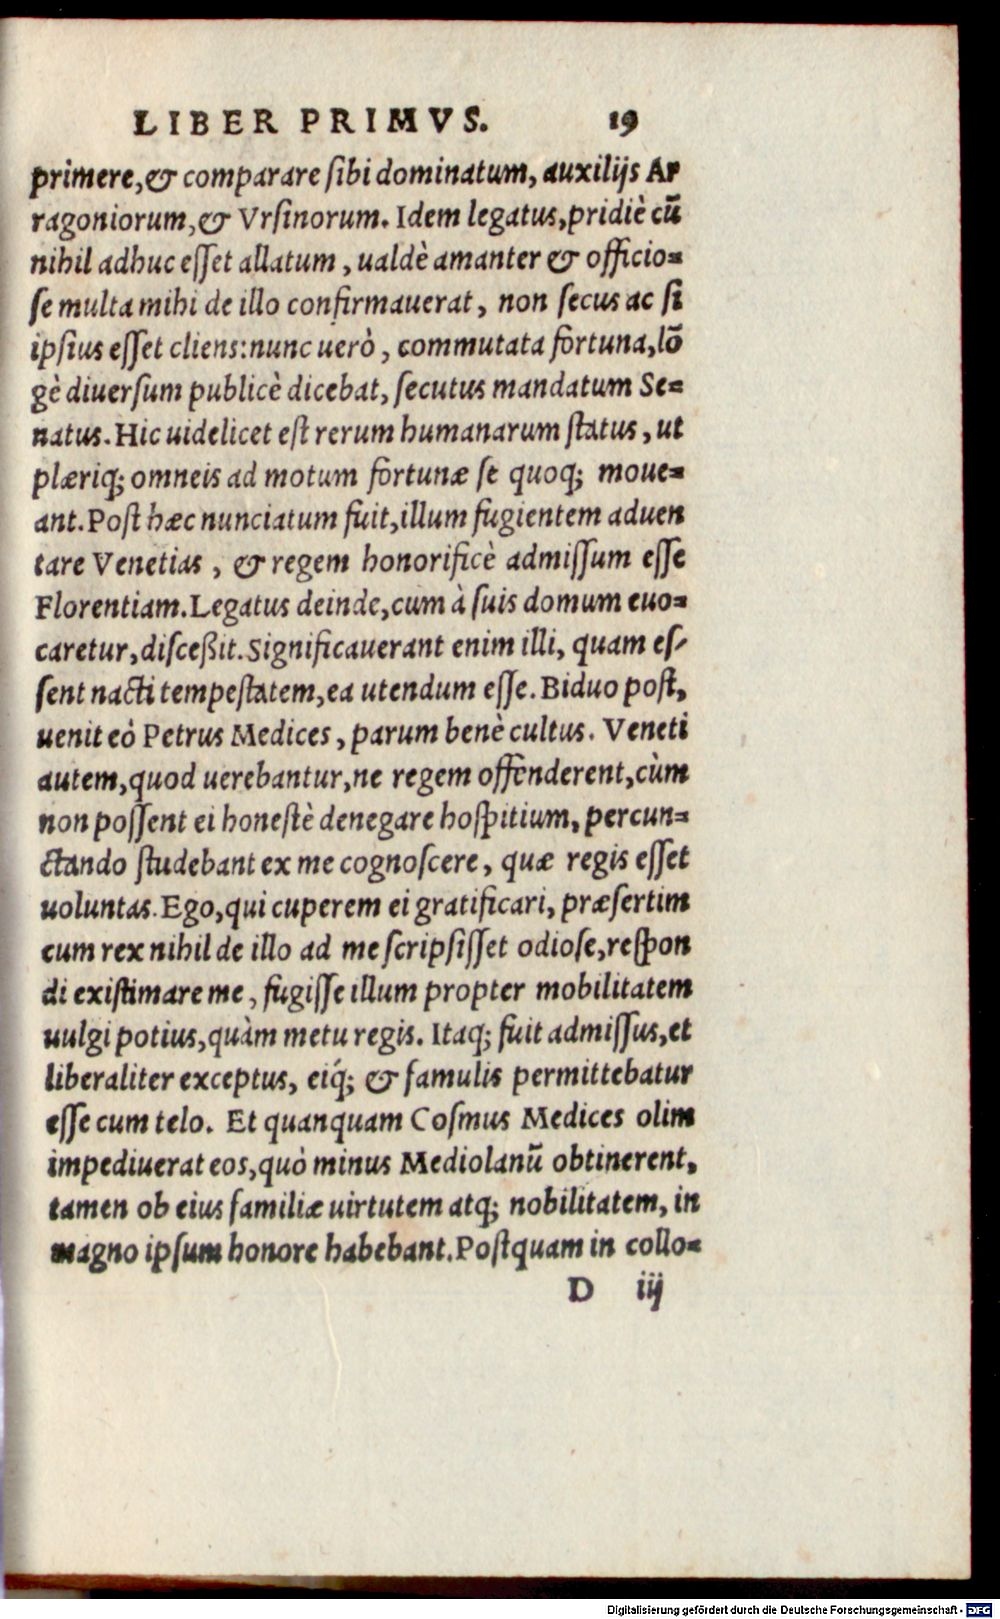 LIBER PRIMVS. 19
primere, & comparare sibi dominatum, auxilijs Ar
ragoniorum, & Vrsinorum. Idem legatus, pridiè cũ
nihil adhuc esset allatum, ualdè amanter & officio=
se multa mihi de illo confirmauerat, non secus ac si
ipsius esset cliens: nunc uerò, commutata fortuna, lõ
gè diuersum publicè dicebat, secutus mandatum Se=
natus. Hic uidelicet est rerum humanarum status, ut
plæriq; omneis ad motum fortunæ se quoq; moue=
ant. Post hæc nunciatum fuit, illum fugientem aduen
tare Venetias, & regem honorificè admissum esse
Florentiam. Legatus deinde, cum à suis domum euo=
caretur, disceßit. Significauerant enim illi, quam es-
sent nacti tempestatem, ea utendum esse. Biduo post,
uenit eò Petrus Medices, parum benè cultus. Veneti
autem, quod uerebantur, ne regem offenderent, cùm
non possent ei honestè denegare hospitium, percun=
ctando studebant ex me cognoscere, quæ regis esset
uoluntas. Ego, qui cuperem ei gratificari, præsertim
cum rex nihil de illo ad me scripsisset odiose, respon
di existimare me, fugisse illum propter mobilitatem
uulgi potius, quàm metu regis. Itaq; fuit admissus, et
liberaliter exceptus, eiq́; & famulis permittebatur
esse cum telo. Et quanquam Cosmus Medices olim
impediuerat eos, quò minus Mediolanũ obtinerent,
tamen ob eius familiæ uirtutem atq; nobilitatem, in
magno ipsum honore habebant. Postquam in collo=
D iij
Digitalisierung gefördert durch die Deutsche Forschungsgemeinschaft - DFG